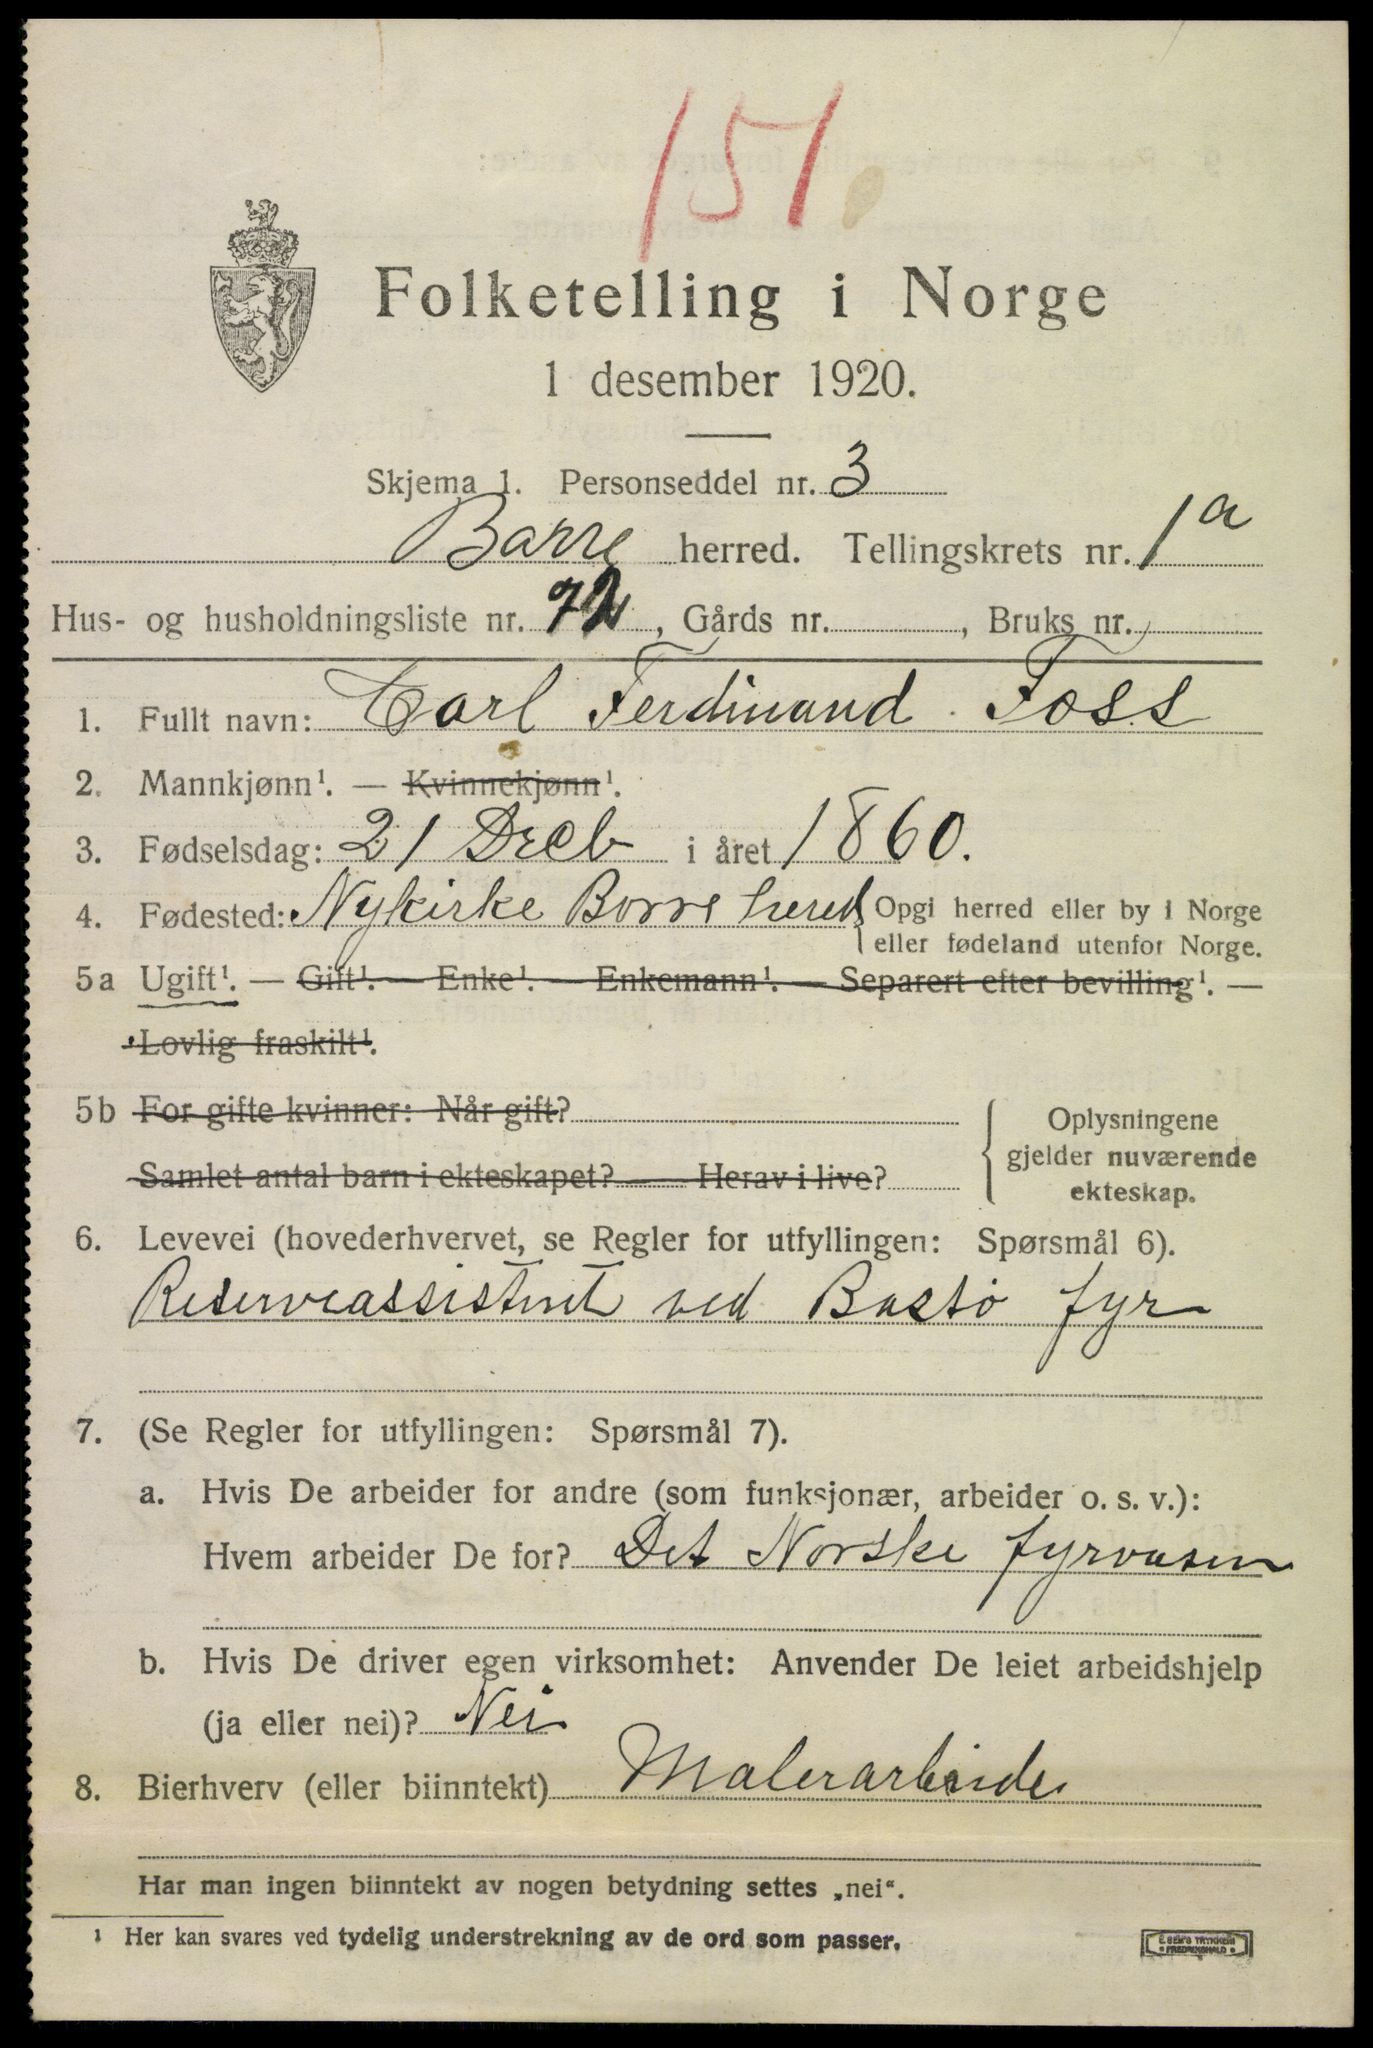 151
Folketelling i Norge
1 desember 1920.
Skjema 1. Personseddel nr. 3
Borre herred. Tellingskrets nr. 1a
Hus- og husholdningsliste nr. 72, Gårds nr. , Bruks nr.
1. Fullt navn: Carl Ferdinand Foss
2. Mannkjønn¹. — Kvinnekjønn¹.
3. Fødselsdag: 21 Decb i året 1860.
4. Fødested: Nykirke Borre hered { Opgi herred eller by i Norge
eller fødeland utenfor Norge.
5a Ugift¹. — Gift¹. — Enke¹. — Enkemann¹. — Separert efter bevilling¹. —
Lovlig fraskilt¹.
5b For gifte kvinner: Når gift?
Samlet antal barn i ekteskapet? Herav i live?
Oplysningene
gjelder nuværende
ekteskap.
6. Levevei (hovederhvervet, se Regler for utfyllingen: Spørsmål 6).
Reserveassistent ved Bastø fyr
7. (Se Regler for utfyllingen: Spørsmål 7).
a. Hvis De arbeider for andre (som funksjonær, arbeider o. s. v.):
Hvem arbeider De for? Det Norske fyrvæsen
b. Hvis De driver egen virksomhet: Anvender De leiet arbeidshjelp
(ja eller nei)? Nei
8. Bierhverv (eller biinntekt) Malerarbeide
Har man ingen biinntekt av nogen betydning settes „nei“.
¹ Her kan svares ved tydelig understrekning av de ord som passer.
E. SEM'S TRYKKERI
FREDRIKSHALD